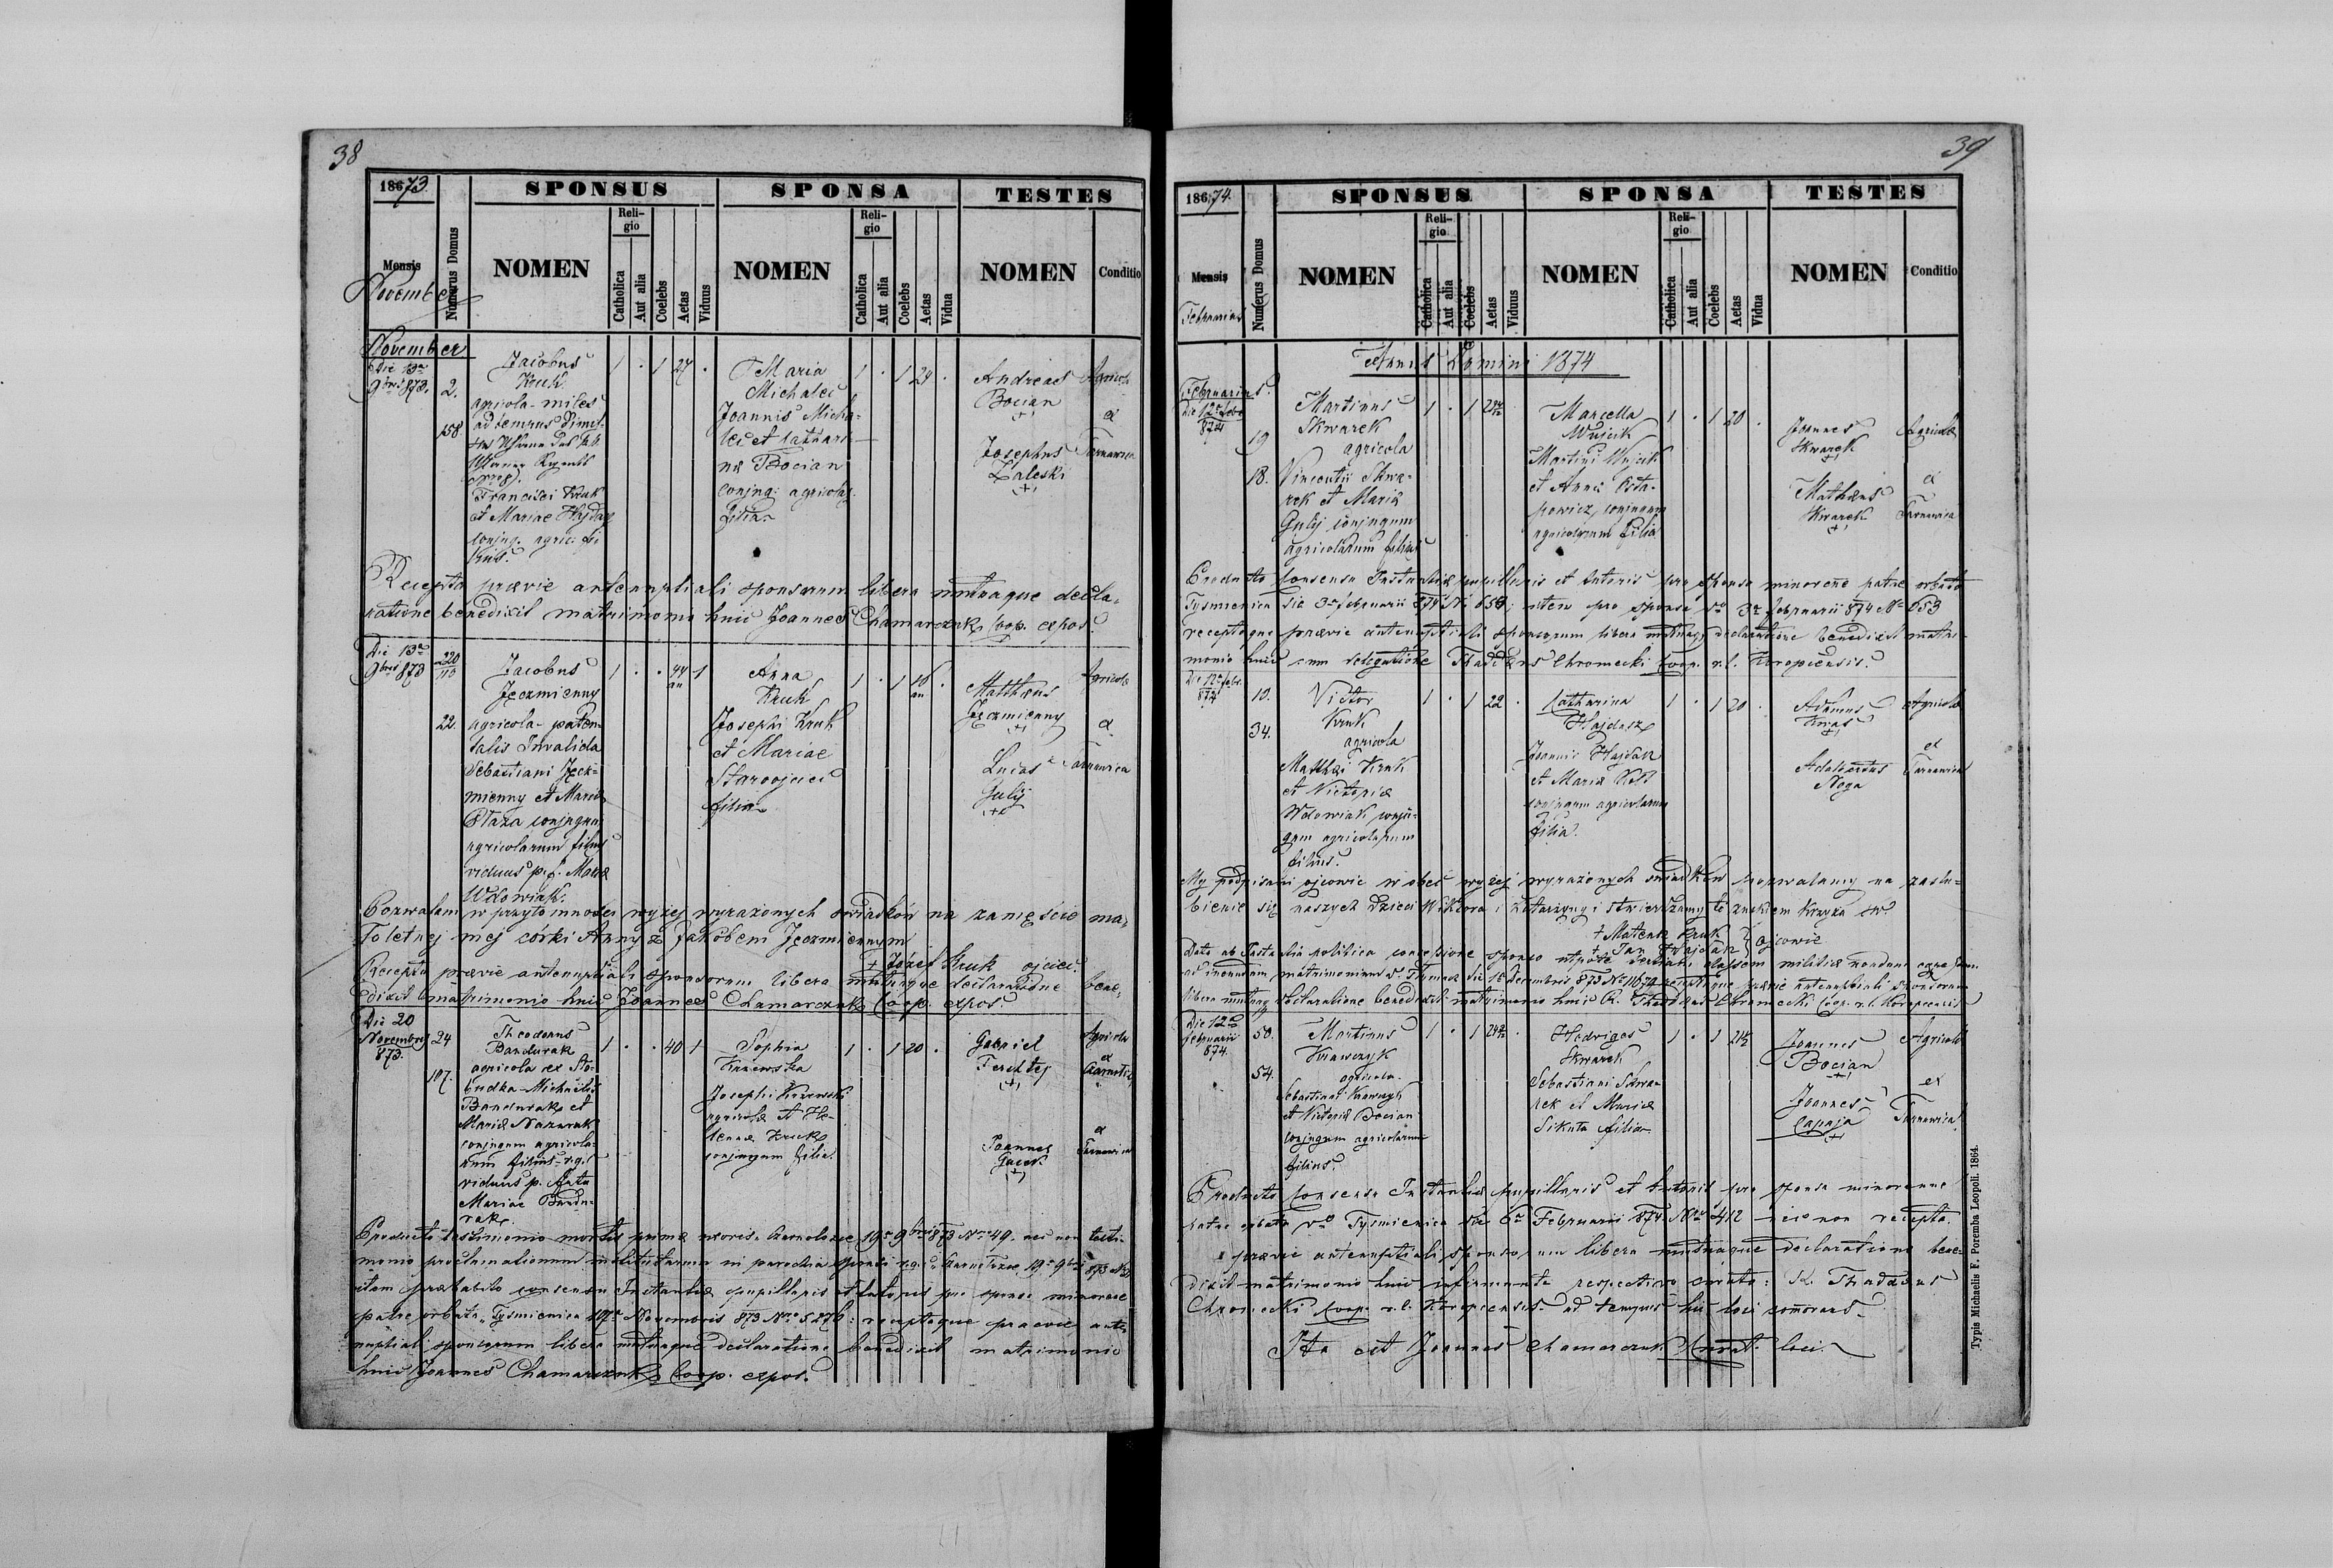 38
1873
SPONSUS
SPONSA
TESTES
Mensis
Numerus Domus
NOMEN
Religio
Catholica
Aut alia
Coelebs
Aetas
Viduus
NOMEN
Religio
Catholica
Aut alia
Coelebs
Aetas
Vidua
NOMEN
Conditio
November
November
Die 13a
9bris 873.
2.
158
Jacobus
Kruk
agricola - miles
Francisci Kruk
et Mariae Hajdasz
conjug. agric. fi-
lius.
1 . 1 27 .
Maria
Michalec
Joannis Micha-
lec et Cathari-
næ Bocian
conjug. agricolar.
filia
1 . 1 24 .
Andreas
Bocian
+
Josephus
Zaleski
+
Agricolæ
ex
Tarnawica
Recepta prævie antenuptiali sponsorum libera mutuaque decla-
ratione benedixit matrimonio huic Joannes Chamarczuk Coop. expos.
Die 13a
9bris 873
220
113
22.
Jacobus
Jęczmienny
agricola - paten-
talis Invalida
Sebastiani Jęcz-
mienny et Mariæ
conjugum
agricolarum filius
viduus p. f. Mariæ
Wdowiak.
1 . . 44 1
an
Anna
Kruk
Josephi Kruk
et Mariae
Starowiejec
filia
1 . 1 16 .
an
Matthæus
Jęczmienny
+
Lucas
Guly
+
Agricolæ
ex
Tarnawica
Pozwalam w przytomności wyżej wyrażonych świadków na zamęście ma-
łoletnej mej córki Anny z Jakóbem Jęczmiennym
+ Józef Kruk ojciec.
Recepta prævie antenuptiali sponsorum libera mutuaque declaratione bene-
dixit matrimonio huic Joannes Chamarczuk Coop. expos.
Die 20
Novembris
873.
24
107.
Theodorus
Bandurak
agricola ex Sto-
budka - Michaelis
Bandurak et
Mariæ Nazurak
conjugum agricola-
rum filius r.g.
viduus p. fata
Mariae Bandu-
rak.
1 . . 40 1
Sophia
Krzewska
Josephi Krzewski
agricolæ et He-
lenæ Kruk
conjugum filia.
1 . 1 20 .
Gabriel
+
Joannes
Gacek
+
Agricolæ
ex
ex
Tarnawica
Producto testimonio mortis primæ uxoris 19a 9bris 873 Nro 49. nec non testi-
monio proclamationum institutarum in parochia sponsi r.g. 19a 9bris 873
item præhabito consensu Instantiæ pupillaris et tutoris pro sponsa minorene
patre orbata Tysmienica Novembris 873 Nro 5276: receptaque praevie ante-
nuptiali sponsorum libera mutuaque declaratione benedixit matrimonio
huic Joannes Chamarczuk Coop. expos.
39
1874.
SPONSUS
SPONSA
TESTES
Mensis
Numerus Domus
NOMEN
Religio
Catholica
Aut alia
Coelebs
Aetas
Viduus
NOMEN
Religio
Catholica
Aut alia
Coelebs
Aetas
Vidua
NOMEN
Conditio
Februarius
Annus Domini 1874
Februarius
Die 12a febr.
874
19
18.
Martinus
Skwarek
agricola
Vincentii Skwa-
rek et Mariæ
Guly conjugum
agricolarum filius
1 . 1
Marcella
Wujcik
Martini Wujcik
et Annæ Osta-
powicz, conjugum
agricolarum filia
1 . 1 20 .
Joannes
Skwarek
+
Mathæus
Skwarek
+
Agricolæ
ex
Tarnawica
Producto consensu Instantiæ pupillaris et tutoris pro sponso minorene patre orbato
Tysmienica die 3a februarii 874 No 650; item pro sponsa do 3a februarii 874 No 653
receptaque prævie antenuptiali sponsorum libera mutuaq. declaratione benedixit matri-
monio huic cum delegatione Thadæus Chromecki Coop. r.l. Koropiecensis.
Die 12a febr.
874
10.
34.
Victor
Kruk
agricola
Matthæi Kruk
et Victoriæ
Wdowiak conju-
gum agricolarum
filius.
1 . 1 22 .
Catharina
Hajdasz
Joannis Hajdasz
et Mariæ
conjugum agricolarum
filia.
1 . 1 20 .
Adamus
Kwas
+
Adalbertus
Noga
Agricolæ
ex
Tarnawica
My podpisani ojcowie wobec wyżej wyrażonych świadków pozwalamy na zaślu-
bienie się naszych dzieci Wiktora i Katarzyny i stwierdzamy to znakiem krzyża św.
+ Mateusz Kruk
+ Jan Hajdasz
} ojcowie
Dato ab Instantia politica concessione sponso utpote classem militiæ nondum
ad ineundum matrimonium Decembris 873 No 11674 receptaque prævie antenuptiali sponsorum
libera mutuaq. declaratione benedixit matrimonio huic R. Thadæus Chromecki Coop. r.l. Koropiecensis
Die 12a
februarii
874.
50.
54.
Martinus
Krawczyk
agricola
Sebastiani Krawczyk
et Victoriæ Bocian
conjugum agricolarum
filius.
1 . 1
Hedviges
Skwarek
Sebastiani Skwa-
rek et Mariæ
Sikuta filia
1 . 1
Joannes
Bocian
+
Joannes
Capaja
+
Agricolæ
ex
Tarnawica
Producto consensu Instantiæ pupillaris et tutoris pro sponsa minorenne
patre orbata do Tysmienica die 6a Februarii 874 Nro 412 nec non recepta
prævie antenuptiali sponsorum libera mutuaque declaratione bene-
dixit matrimonio huic infirmitate respectivo curato: R. Thadæus
Chromecki Coop. r.l. Koropiecensis ad tempus hic loci comorans.
Ita est Joannes Chamarczuk Curat. loci.
Typis Michaelis F. Poremba Leopoli. 1864.